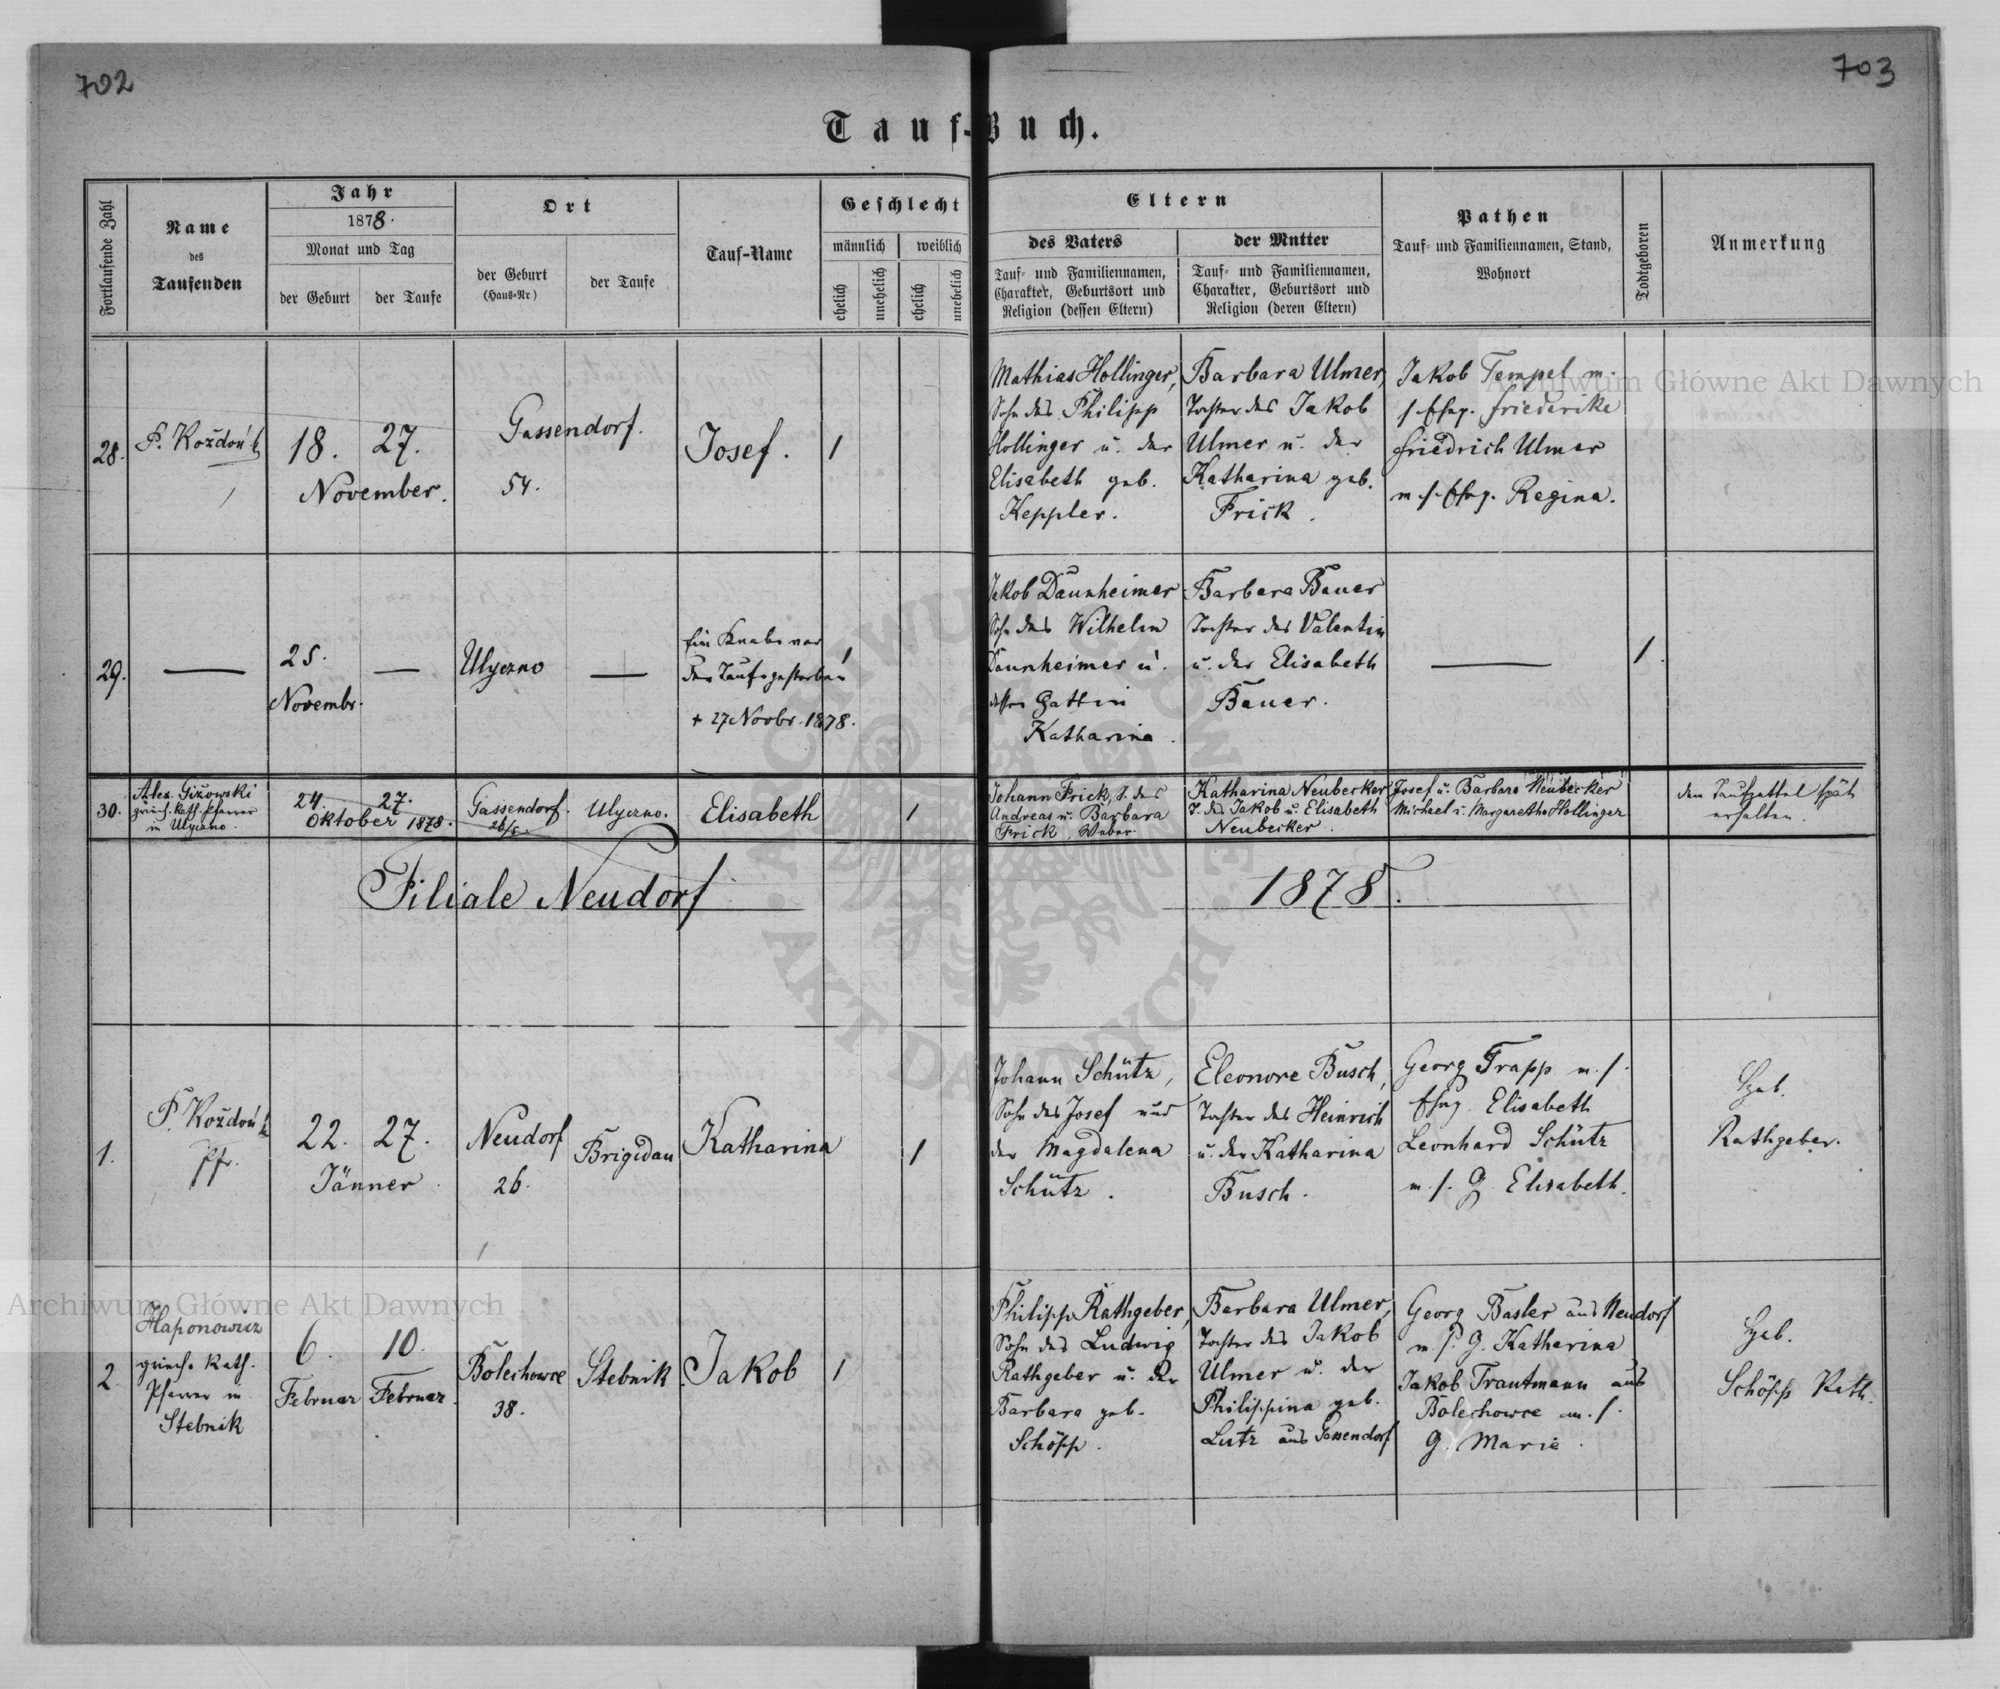 702
703
Tauf-Buch.
Fortlaufende Zahl
Name
des
Taufenden
Jahr
1878.
Monat und Tag
der Geburt
der Taufe
Ort
der Geburt
(Haus-Nr)
der Taufe
Tauf-Name
Geschlecht
männlich
weiblich
ehelich
unehelich
ehelich
unehelich
Eltern
des Vaters
Tauf- und Familiennamen,
Charakter, Geburtsort und
Religion (dessen Eltern)
der Mutter
Tauf- und Familiennamen,
Charakter, Geburtsort und
Religion (deren Eltern)
Pathen
Tauf- und Familiennamen, Stand,
Wohnort
Todtgeboren
Anmerkung
28.
P. Koždoń
18. 27.
November.
Gassendorf.
54.
Josef.
1
Mathias Hollinger,
Sohn des Philipp
Hollinger u. der
Elisabeth geb.
Keppler.
Barbara Ulmer,
Tochter des Jakob
Ulmer u. der
Katharina geb.
Frick.
Jakob Tempel m.
s. Eheg. Friederike
Friedrich Ulmer
m. s. Eheg. Regina.
29.
—
25.
Novembr.
—
Ulyczno
—
Ein Knabe vor
der Taufe gestorben
+ 27 Novbr. 1878.
1
Jakob Daunheimer
Sohn des Wilhelm
Daunheimer u.
dessen Gattin
Katharina.
Barbara Bauer
Tochter des Valentin
u. der Elisabeth
Bauer.
—
1.
30.
Alex. Gizowski
griech. kath. Pfarrer
in Ulyczno.
24. 27.
Oktober 1878.
Gassendorf.
Ulyczno.
Elisabeth
1
Johann Frick, S. des
Andreas u. Barbara
Frick, Weber.
Katharina Neubecker
T. des Jakob u. Elisabeth
Neubecker.
Josef u. Barbara Neubecker
Michael u. Margaretha Hollinger
den Taufzettel spät
erhalten.
Filiale Neudorf
1878.
1.
P. Koždoń
Pfr.
22. 27.
Jänner.
Neudorf
26.
Brigidau
Katharina
1
Johann Schütz,
Sohn des Josef und
der Magdalena
Schütz.
Eleonore Busch,
Tochter des Heinrich
u. der Katharina
Busch.
Georg Trapp m. s.
Eheg. Elisabeth
Leonhard Schütz
m. s. G. Elisabeth.
Heb.
Rathgeber.
2
Haponowicz
griech. kath.
Pfarrer in
Stebnik
6. 10.
Februar Februar.
Bolechowce
38.
Stebnik
Jakob
1
Philipp Rathgeber,
Sohn des Ludwig
Rathgeber u. der
Barbara geb.
Schöpp.
Barbara Ulmer,
Tochter des Jakob
Ulmer u. der
Philippina geb.
Lutz aus Gassendorf
Georg Basler aus Neudorf
m. s. G. Katharina
Jakob Trautmann aus
Bolechowce m. s.
G. Marie.
Heb.
Schöpp Kath.
Archiwum Główne Akt Dawnych
Archiwum Główne Akt Dawnych
ARCHIWUM GŁÓWNE AKT DAWNYCH